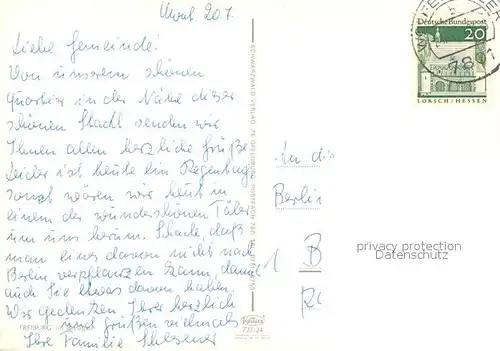 20.7.
Liebe Gemeinde!
Von unserem schönen
Quartier in der Nähe dieser
schönen Stadt senden wir
Ihnen allen herzliche Grüße
Leider ist heute ein Regentag
sonst wären wir heut in
einem der wunderschönen Täler
um uns herum. Schade daß
man eines davon nicht nach
Berlin verpflanzen kann, damit
auch Sie etwas davon haben.
Wir gedenken Ihrer herzlich
und grüßen vielmals
Ihre Familie
FREIBURG
SCHWARZWALD-VERLAG
727/24
Deutsche Bundespost
20
LORSCH/HESSEN
An die
Berlin
1 B
privacy protection
Datenschutz